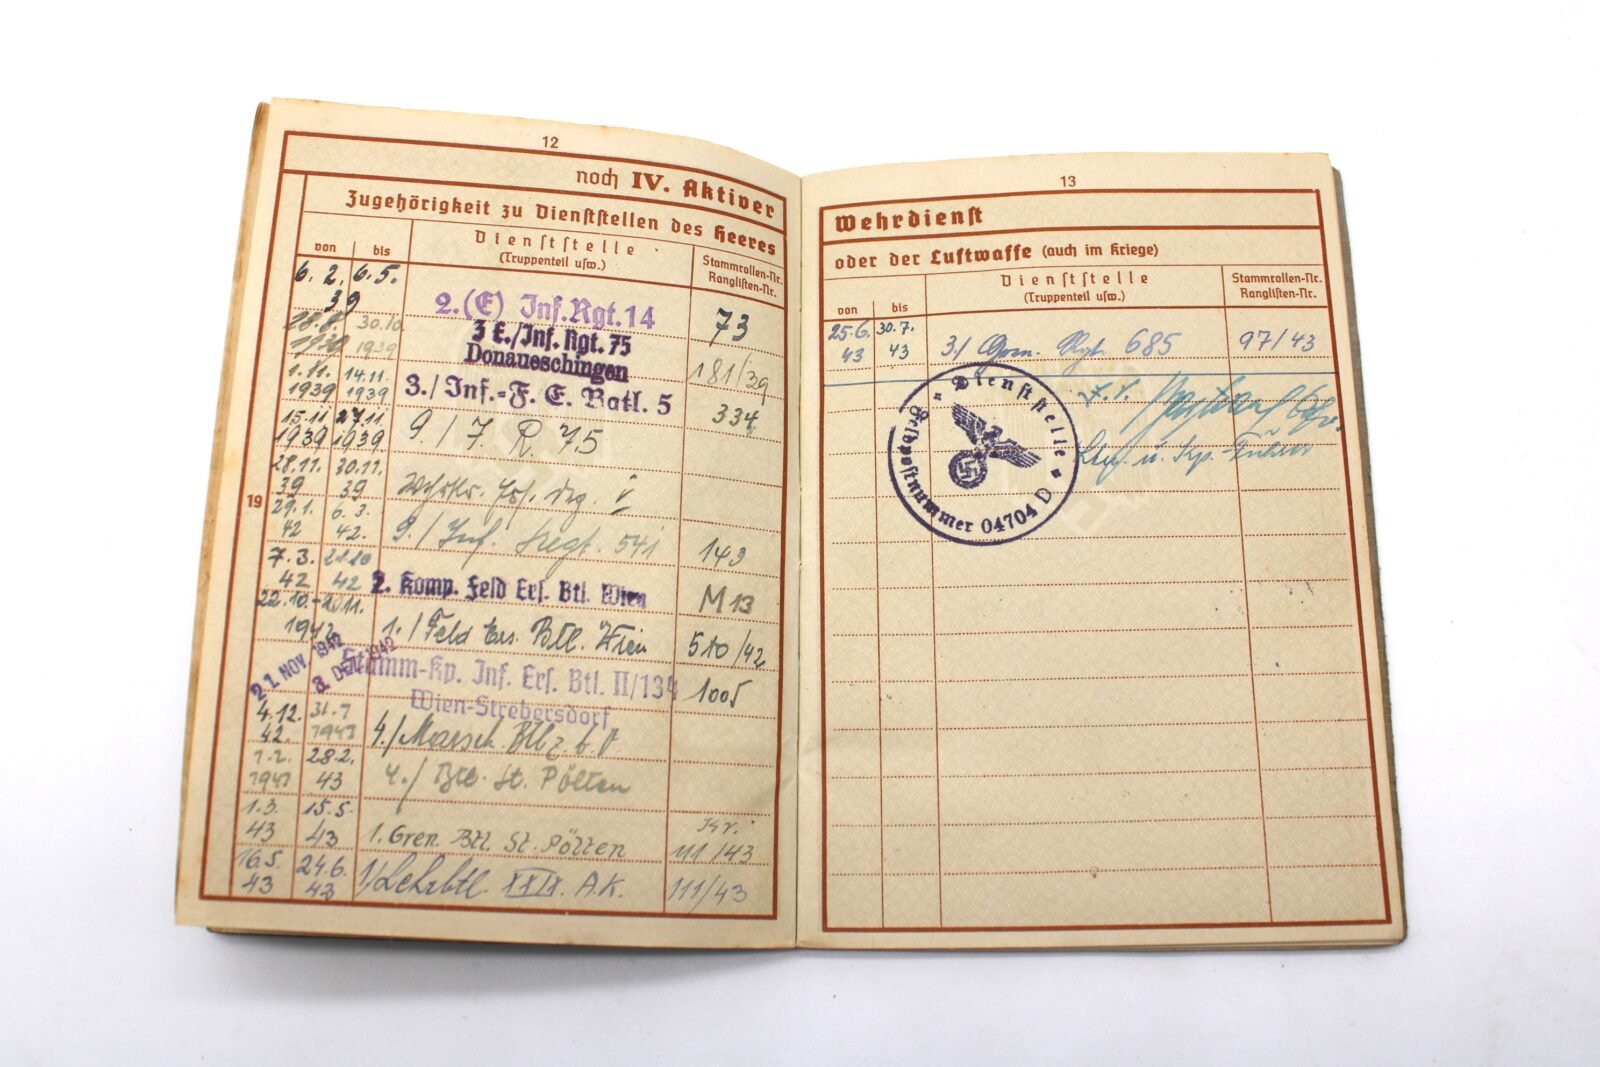 12
noch IV. Aktiver
Zugehörigkeit zu Dienststellen des Heeres
von bis Dienststelle (Truppenteil usw.) Stammrollen-Nr. Ranglisten-Nr.
19
6.2. 6.5. 39 2.(E) Inf.Rgt.14 73
28.8. 1939 30.10 1939 3 E./Inf. Rgt. 75 Donaueschingen 181/39
1.11. 1939 14.11. 1939 3./Inf.-F. E. Batl. 5 334
15.11 1939 27.11. 1939 9./ R 75
28.11. 39 30.11. 39
29.1. 42 6.3. 42. 9./Inf. Regt. 541 143
7.3. 42 21.10 42 2. Komp. Feld Ers. Btl. Wien M 13
22.10.- 1942 1./Feld Ers. Btl. Wien 510/42
21. NOV. 1942 3. DEZ. 1942 Stamm-Kp. Inf. Ers. Btl. II/134 Wien-Strebersdorf 1005
4.12. 42. 31.1 1943 4./Marsch. Btl. z. b. V.
1.2. 1943 28.2. 43 4./Btl. St. Pölten
1.3. 43 15.5. 43 1. Gren. Btl. St. Pölten 111/43
16.5. 43 24.6. 43 1/Lehrbtl. XXIX. A.K. 111/43
13
Wehrdienst
oder der Luftwaffe (auch im Kriege)
von bis Dienststelle (Truppenteil usw.) Stammrollen-Nr. Ranglisten-Nr.
25.6. 43 30.7. 43 3./Gren. Rgt. 685 97/43
Dienststelle
Feldpostnummer 04704 D
u. Kp.-Führer